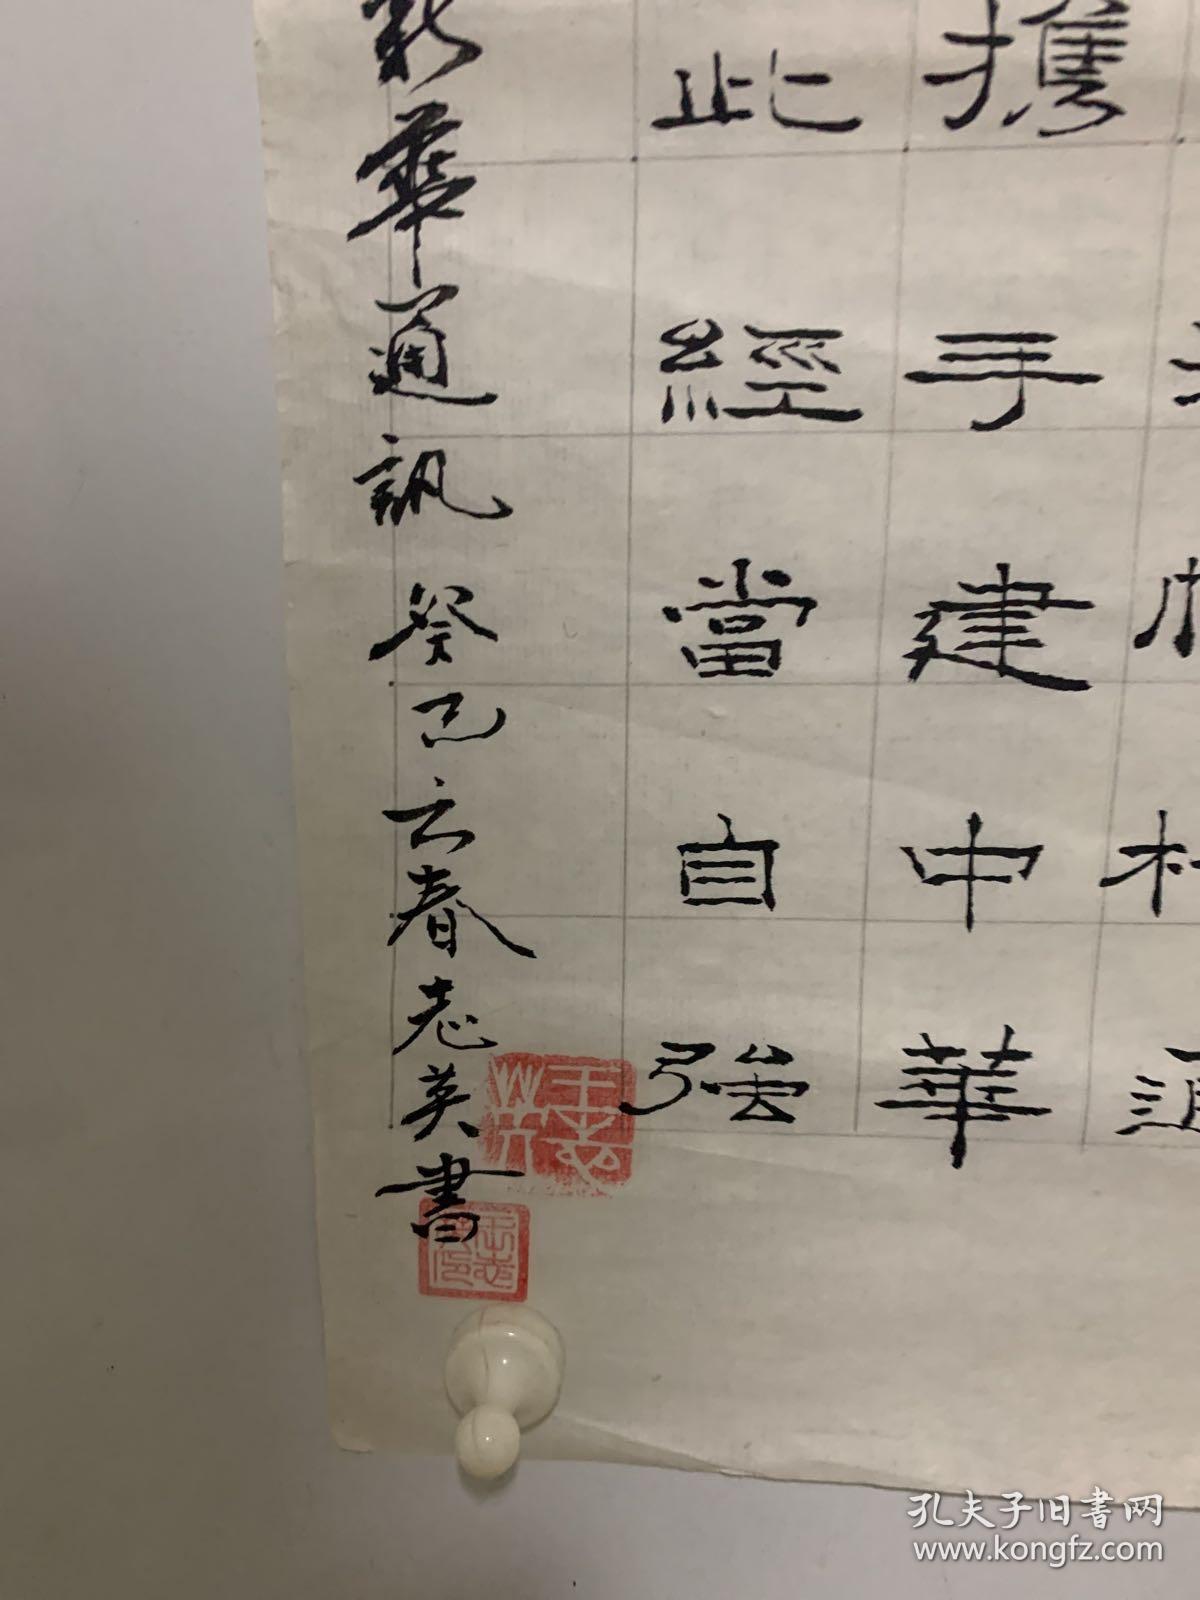 攜手建中華
此經當自強
新華通訊癸巳立春志英書
孔夫子旧书网
www.kongfz.com